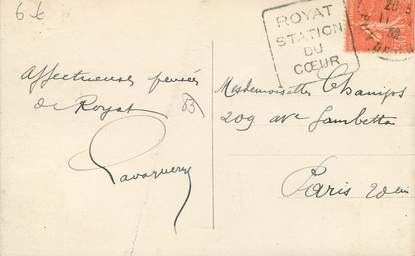 66
ROYAT
STATION
DU
CŒUR
Affectueuses pensées
de Royat
63
Mesdemoiselles Champs
209 ave Gambetta
Paris 20em